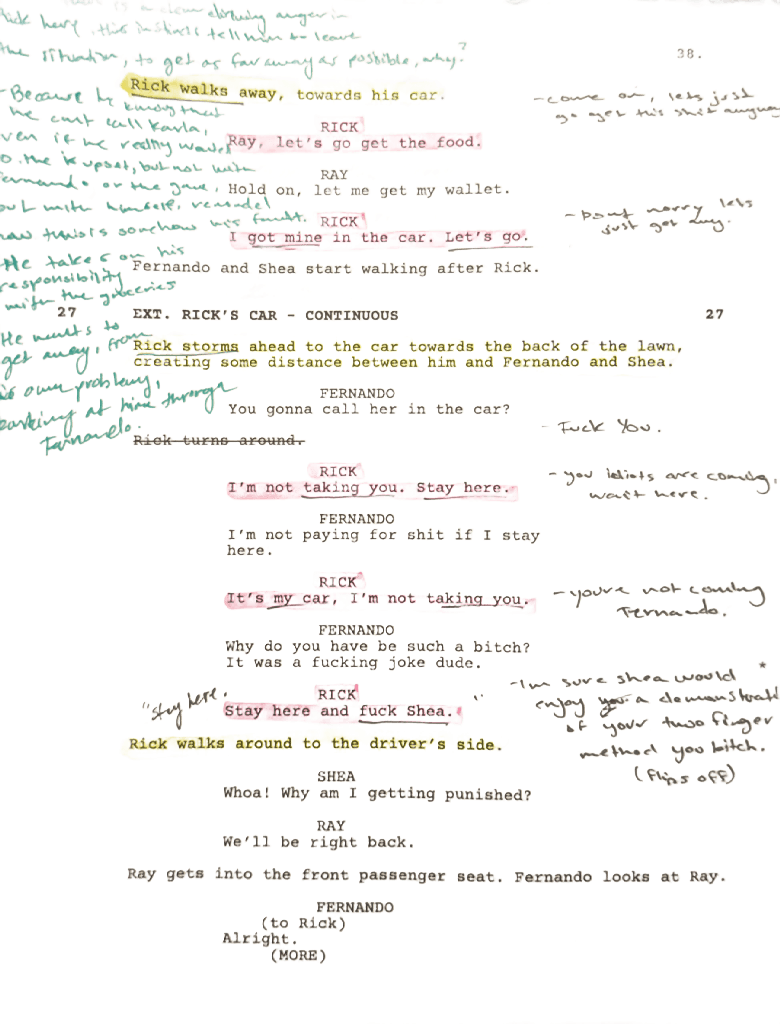 Rick here, this instinct tell him to leave
the situation, to get as far away as possible, why?
- Because he knows that
he cant call Karla,
even if he really wants
to. He is upset, but not with
Fernando or the game,
but with himself,
how this is somehow his fault.
He takes on his
responsibility
with the groceries
He wants to
get away, from
his own problem,
barking at him through
Fernando.
38.
Rick walks away, towards his car.
- come on, lets just
go get this shit anyway
RICK
Ray, let's go get the food.
RAY
Hold on, let me get my wallet.
RICK
I got mine in the car. Let's go.
- Dont worry lets
just get
Fernando and Shea start walking after Rick.
27 EXT. RICK'S CAR - CONTINUOUS 27
Rick storms ahead to the car towards the back of the lawn,
creating some distance between him and Fernando and Shea.
FERNANDO
You gonna call her in the car?
- Fuck You.
Rick turns around.
RICK
I'm not taking you. Stay here.
- you idiots are coming,
wait here.
FERNANDO
I'm not paying for shit if I stay
here.
RICK
It's my car, I'm not taking you.
- you're not coming
Fernando.
FERNANDO
Why do you have be such a bitch?
It was a fucking joke dude.
"Stay here.
RICK
Stay here and fuck Shea.
- I'm sure shea would *
enjoy a demonstrati
of your two finger
method you bitch.
(flips off)
Rick walks around to the driver's side.
SHEA
Whoa! Why am I getting punished?
RAY
We'll be right back.
Ray gets into the front passenger seat. Fernando looks at Ray.
FERNANDO
(to Rick)
Alright.
(MORE)